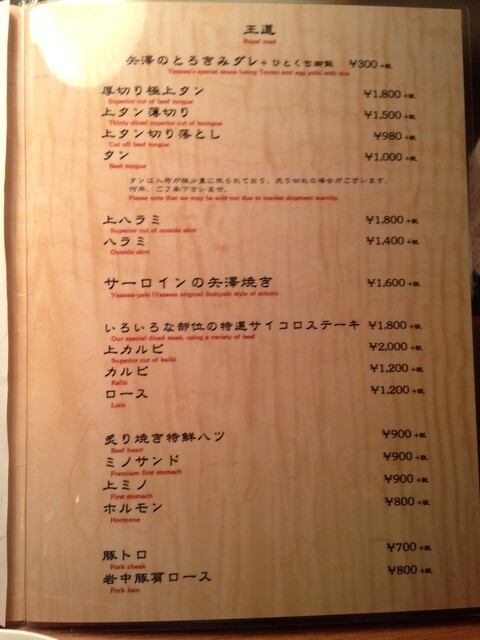 王道
Royal road
矢澤のとろきみダレ+ひとくち御飯 ¥300+税
Yazawa's special sauce (using Tororo and egg yolk) with rice
厚切り極上タン ¥1,800+税
Superior cut of beef tongue
上タン薄切り ¥1,500+税
Thinly sliced superior cut of tounge
上タン切り落とし ¥980+税
Cut off beef tongue
タン ¥1,000+税
Beef tongue
タンは入荷が極少量に限られており、売り切れの場合がございます。
何卒、ご了承下さいませ。
Please note that we may be sold out due to market shipment scarcity.
上ハラミ ¥1,800+税
Superior cut of outside skirt
ハラミ ¥1,400+税
Outside skirt
サーロインの矢澤焼き ¥1,600+税
Yazawa-yaki (Yazawa original Sukiyaki style of sirloin)
いろいろな部位の特選サイコロステーキ ¥1,800+税
Our special diced steak, using a variety of beef
上カルビ ¥2,000+税
Superior cut of kalbi
カルビ ¥1,200+税
Kalbi
ロース ¥1,200+税
Loin
炙り焼き特鮮ハツ ¥900+税
Beef heart
ミノサンド ¥900+税
Premium first stomach
上ミノ ¥900+税
First stomach
ホルモン ¥800+税
Hormone
豚トロ ¥700+税
Pork cheek
岩中豚肩ロース ¥800+税
Pork loin